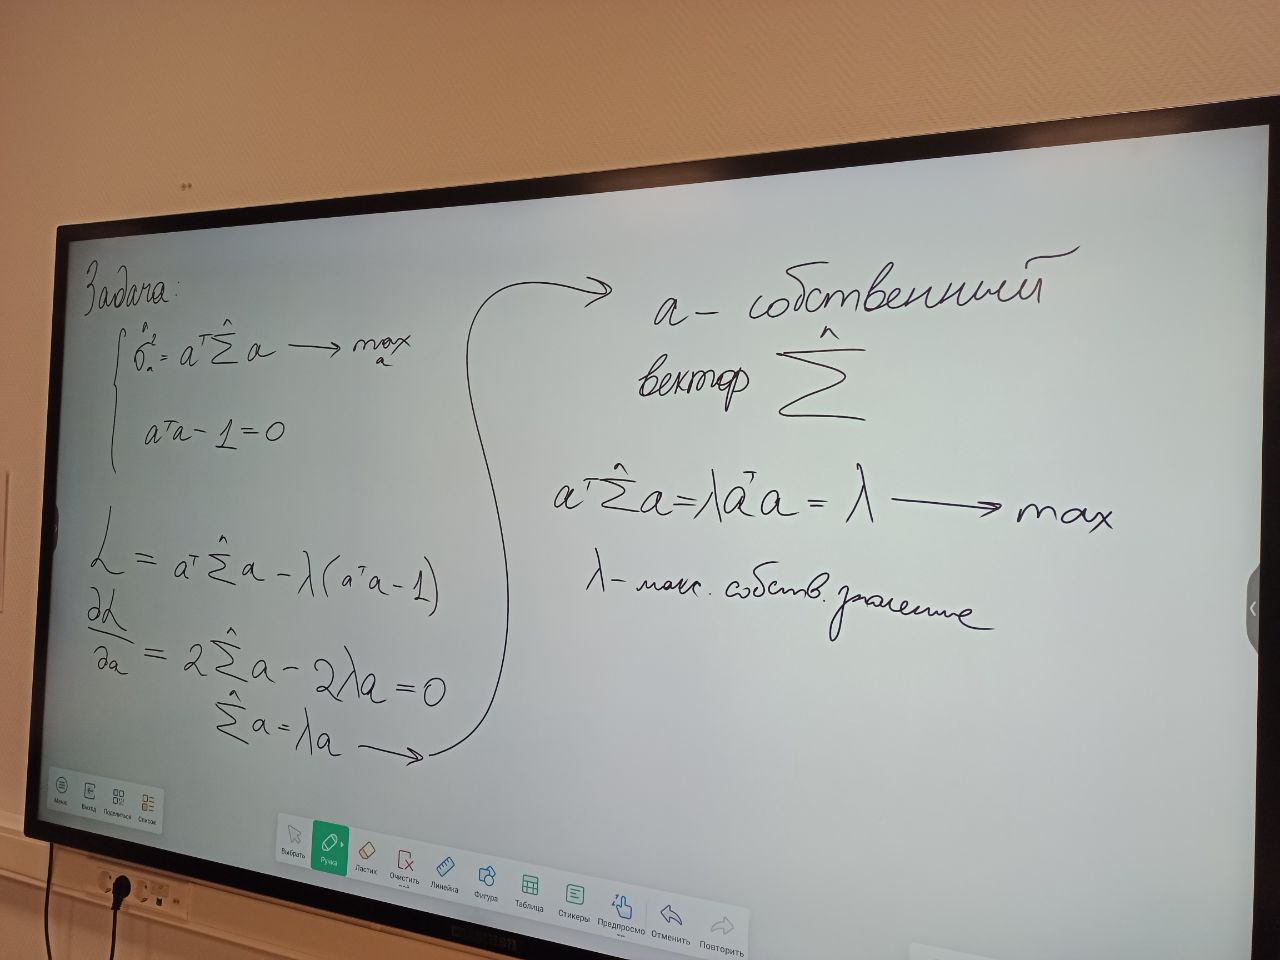 Задача:
σ̂²ₐ = aᵀ Σ̂ a → max
a
aᵀa - 1 = 0
L = aᵀ Σ̂ a - λ(aᵀa - 1)
∂L/∂a = 2Σ̂a - 2λa = 0
Σ̂a = λa →
a - собственный
вектор Σ̂
aᵀ Σ̂ a = λaᵀa = λ → max
λ - макс. собств. значение
Меню
Выход
Поделиться
Список
Выбрать
Ручка
Ластик
Очистить
Линейка
Фигура
Таблица
Стикеры
Предпросмо
Отменить
Повторить